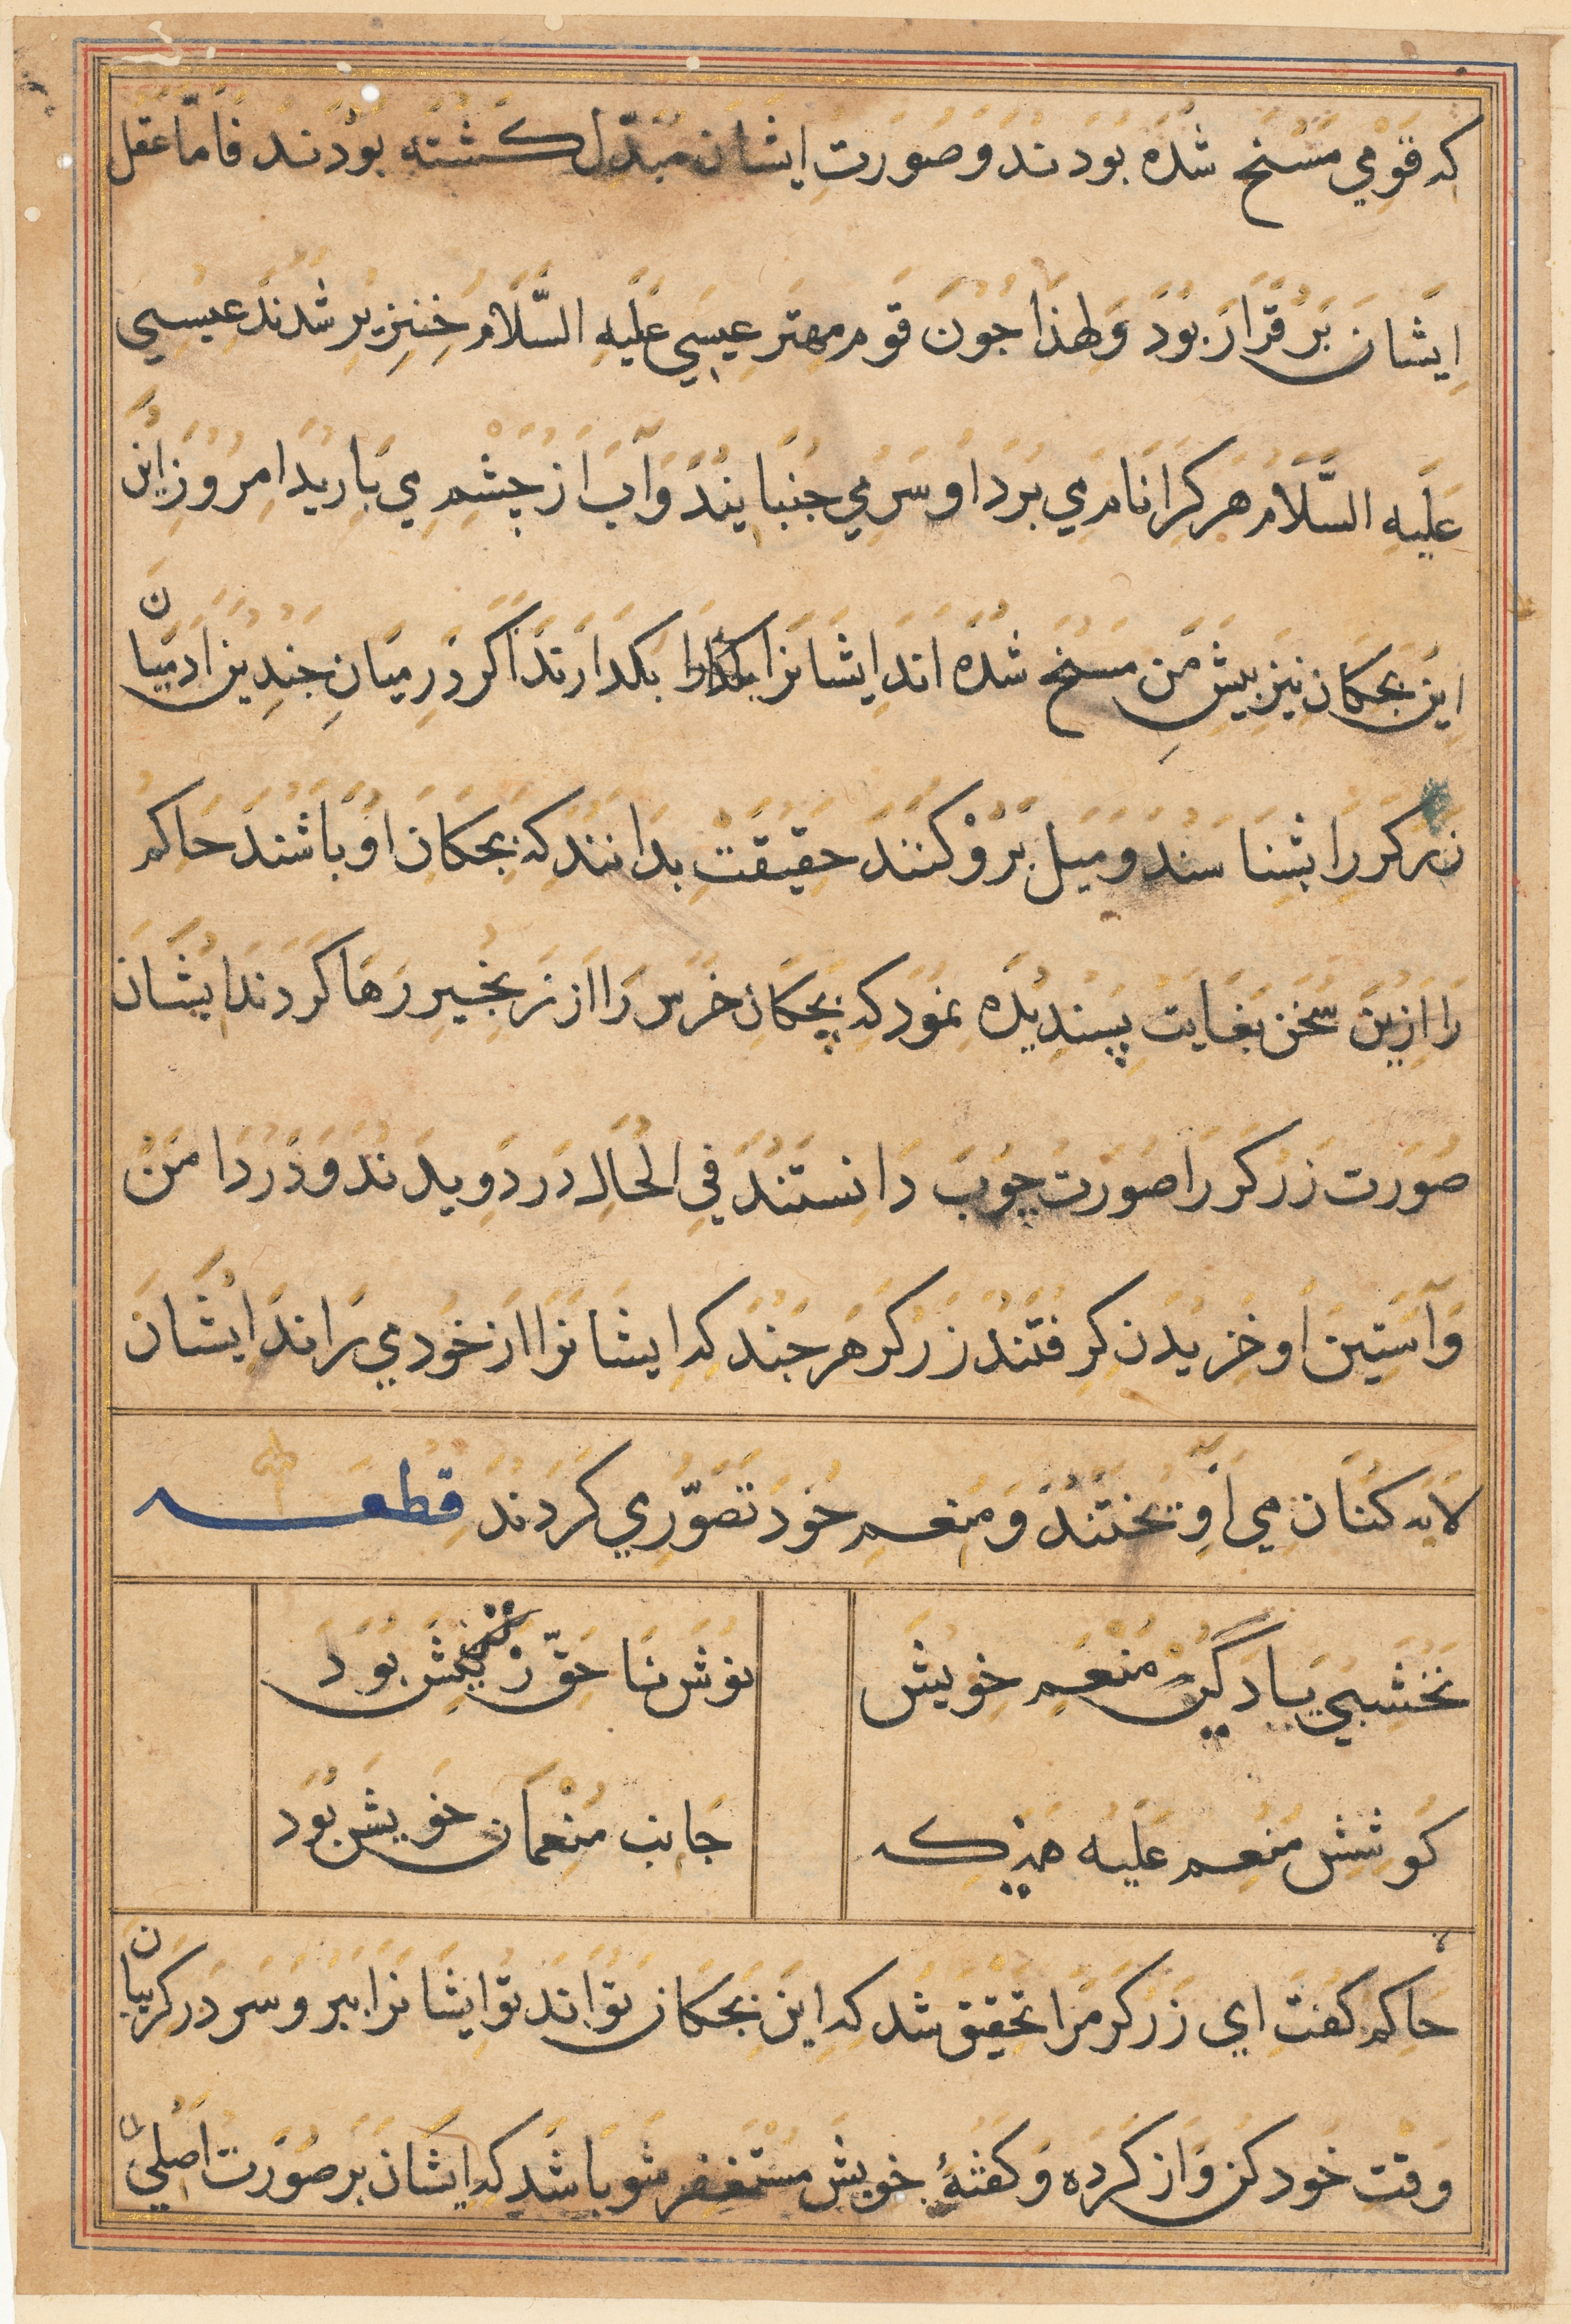 که قومي مسخ شده بودند و صورت ایشان مبدّل کشته بودند فامّا عقل
ایشان بر قرار بود و لهذا جون قوم مهتر عیسی علیه السّلام خنزیر شدند عیسی
علیه السّلام هر کرا نام مي برد او سر مي جنبانید و آب از چشم مي بارید امروز این
این بجکان نیز بیش من مسخ شده اند ایشانرا بکذارند اکر در میان جندین ادمیان
زرکر را بشناسند و میل برو کنند حقیقت بدانند که بجکان او باشند حاکم
را ازین سخن بغایت پسندیده نمود که بچکان خرس را از زنجیر رها کردند ایشان
صورت زرکر را صورت چوب دانستند في الحال در دویدند و در دامن
و آستین او خزیدن کرفتند زرکر هر جند که ایشانرا از خود مي راند ایشان
لابه کنان مي آویختند و منعم خود تصوّري کردند قطعه
نخشبي یاد گیر منعم خویش
نوش ناحقّ ز نیش بود
کوشش منعم علیه هین که
جانب منعمان خویش بود
حاکم کفت اي زرکر مرا تحقیق شد که این بجکان تواند تو ایشانرا ببر و سر در کریبان
وقت خود کن و از کرده و کفتهٔ خویش مستغفر شو باشد که ایشان بر صورت اصلي